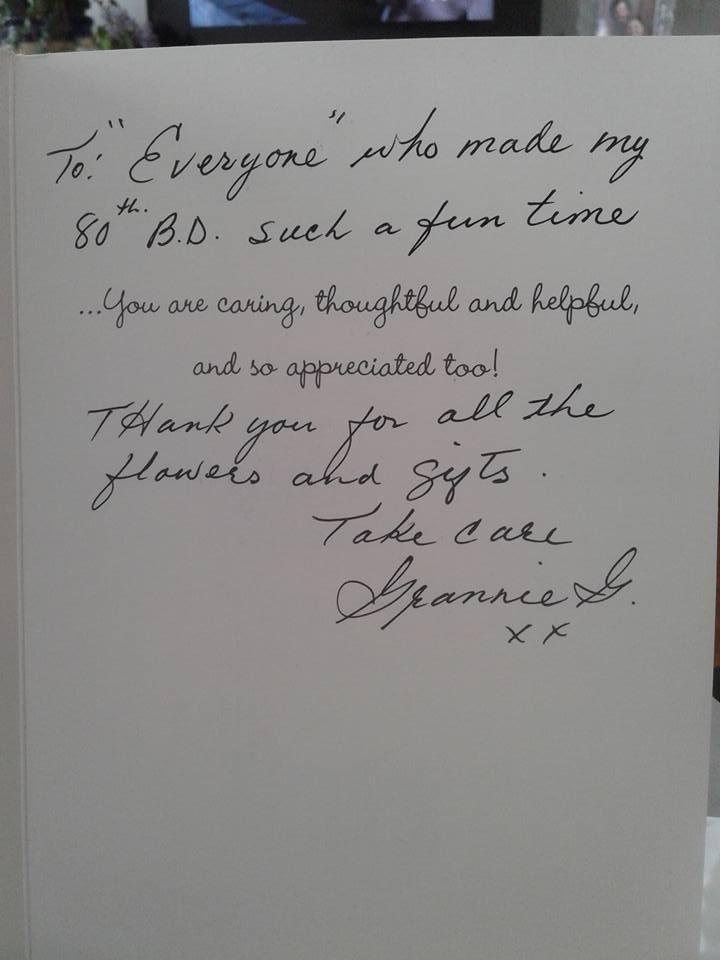 To: "Everyone" who made my
80th. B.D. such a fun time
...You are caring, thoughtful and helpful,
and so appreciated too!
THank you for all the
flowers and gifts.
Take care
Grannie G.
xx